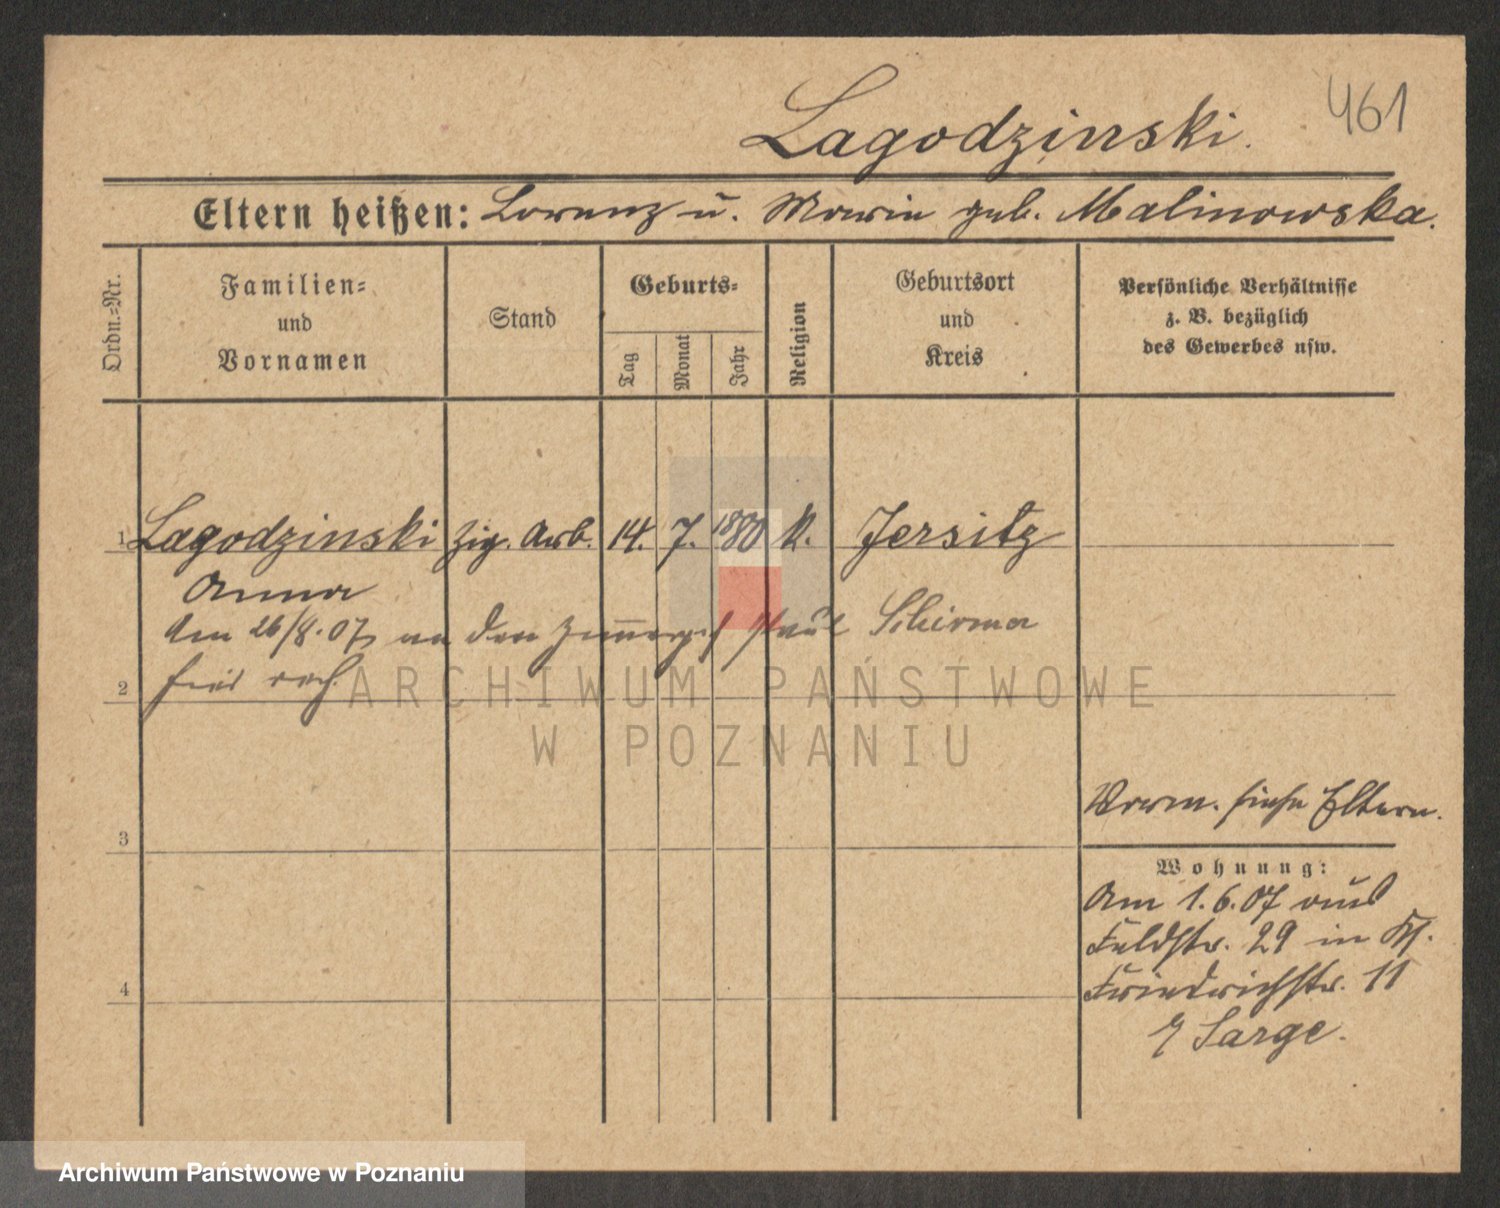 461
Lagodzinski.
Eltern heißen: Lorenz u. Marie geb. Malinowska.
Ordn.-Nr.
Familien-
und
Vornamen
Stand
Geburts-
Tag
Monat
Jahr
Religion
Geburtsort
und
Kreis
Persönliche Verhältnisse
z. B. bezüglich
des Gewerbes usw.
1 Lagodzinski Zig. Arb. 14. 7. 1880 k. Jersitz
Anna
Am 26/8.07 an den Paul Schirma
2
ARCHIWUM PAŃSTWOWE
W POZNANIU
Verm. siehe Eltern.
3
Wohnung:
Am 1.6.07 aus
Feldstr. 29 in
Friedrichstr. 11
4
b/ Sarge.
Archiwum Państwowe w Poznaniu